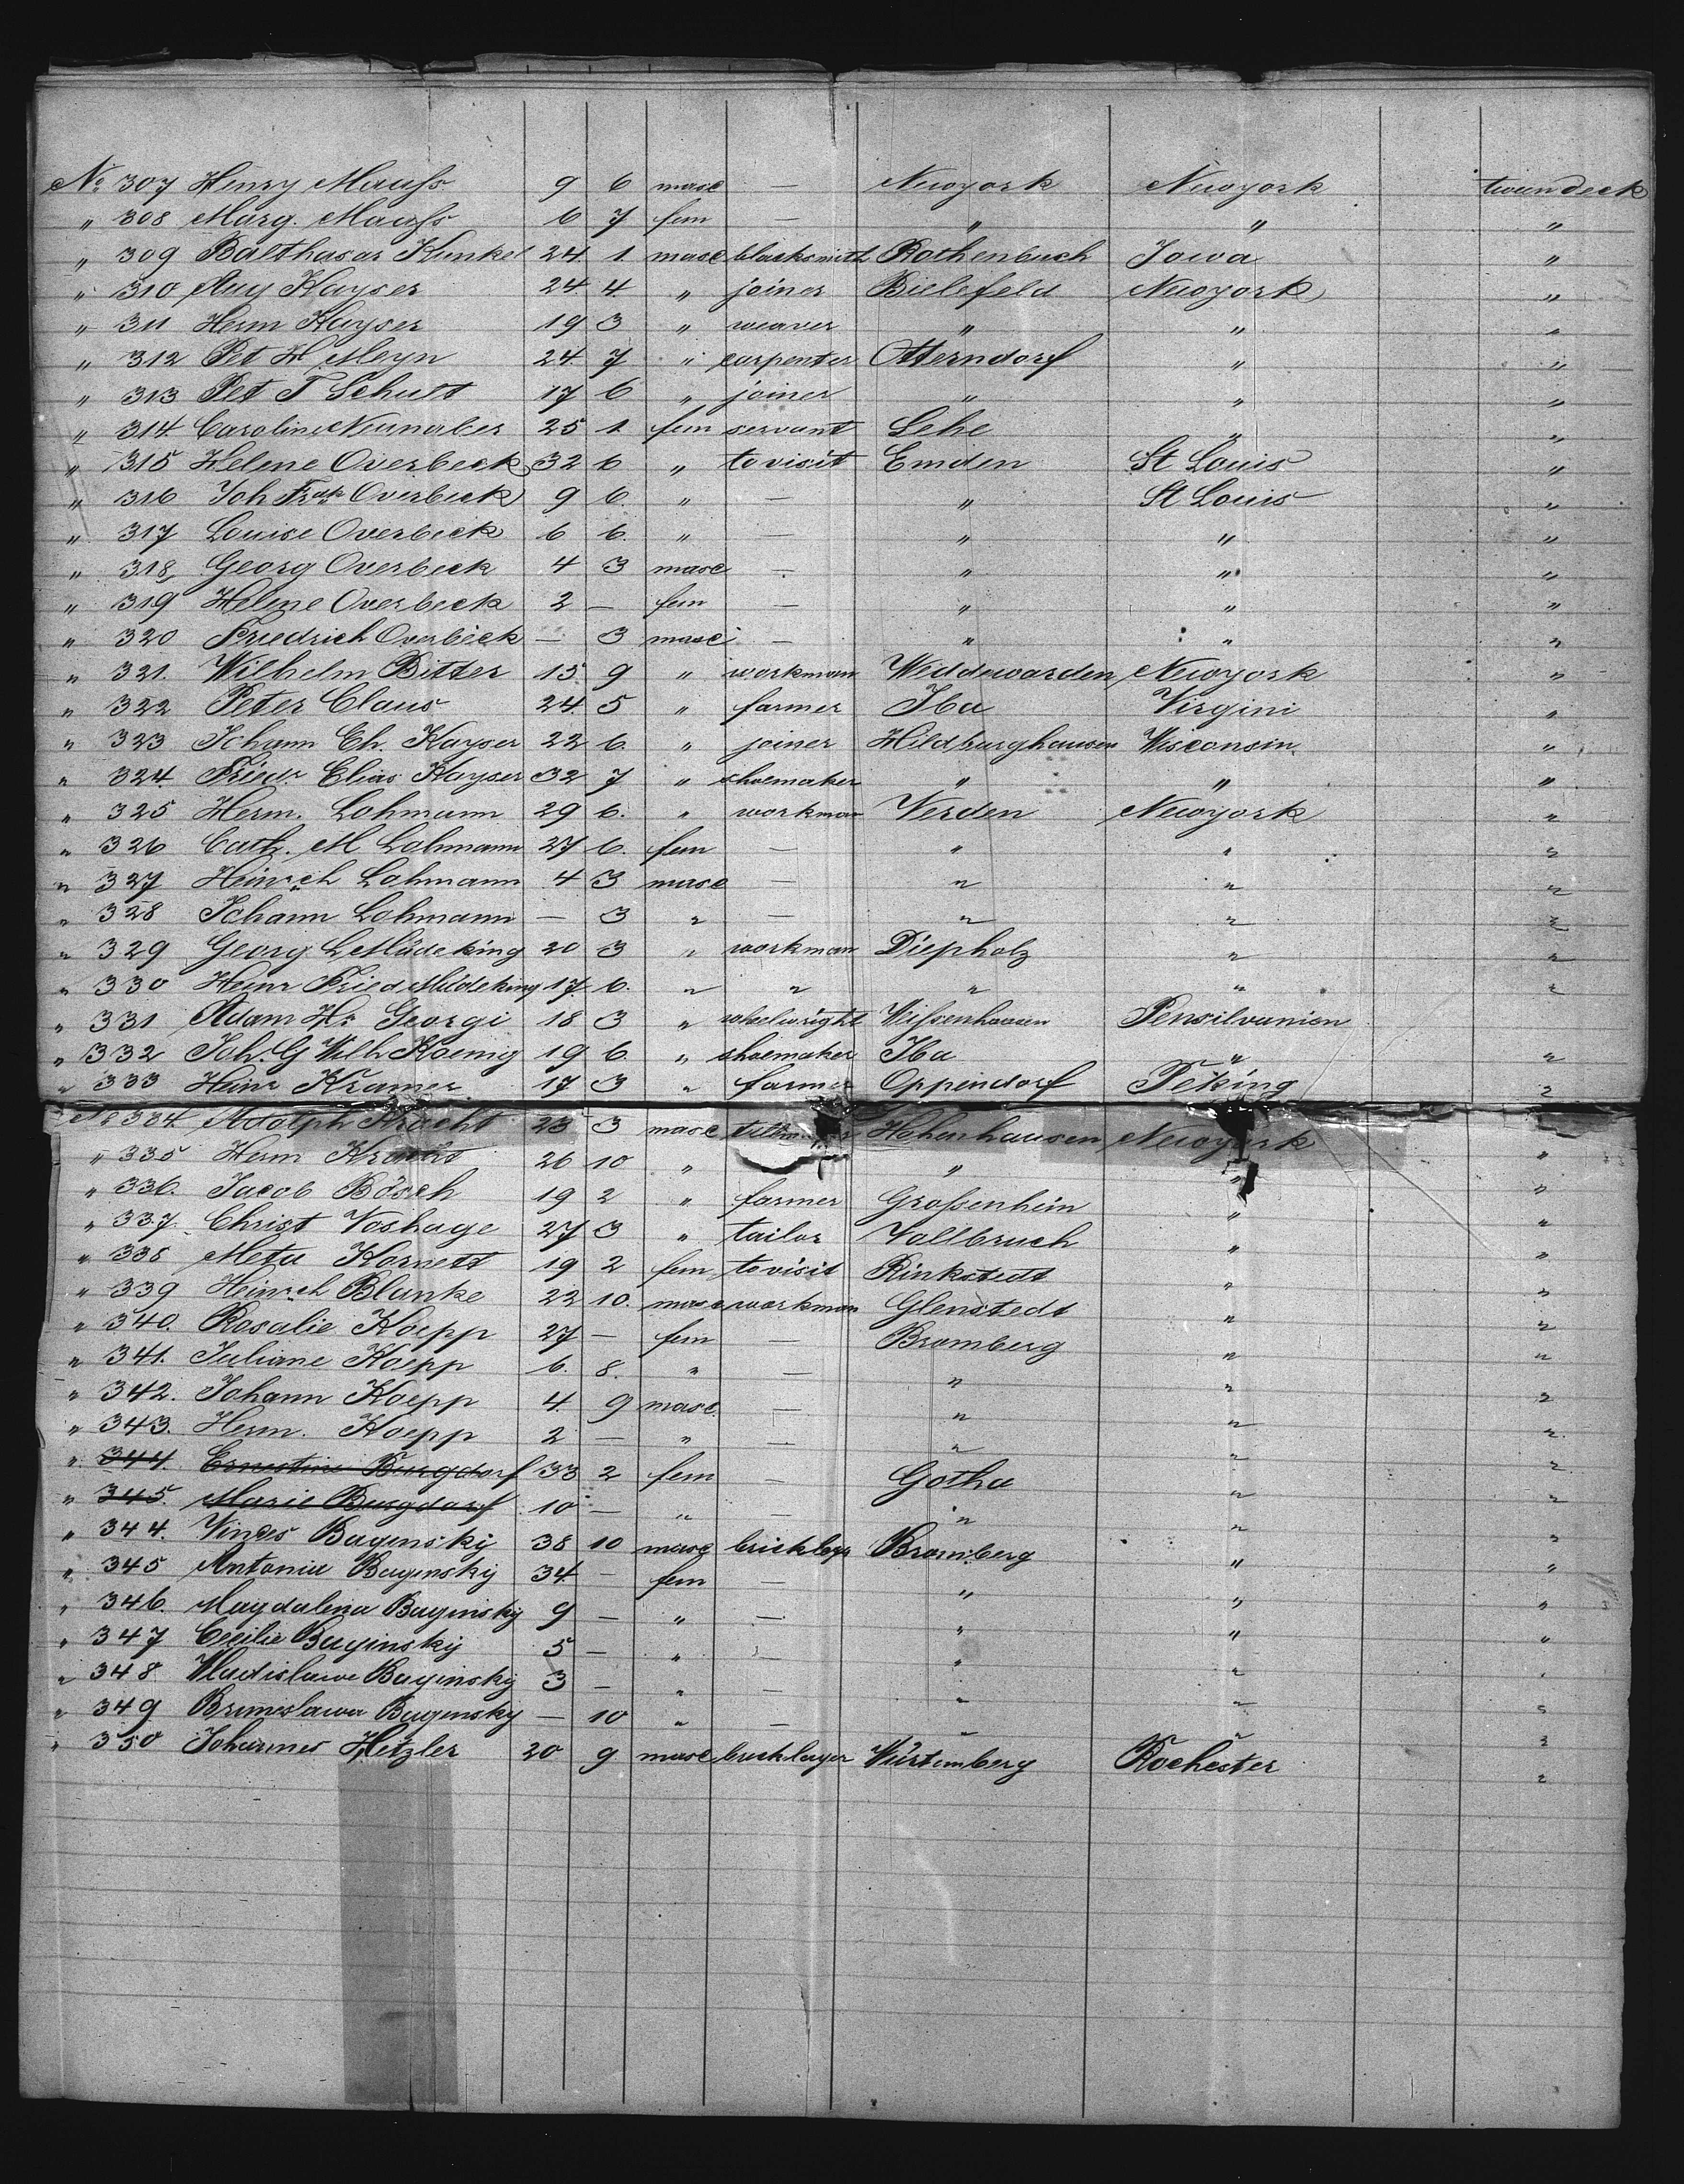 No 307 Henry Maass 9 6 masc — Newyork Newyork tweendeck
" 308 Marg. Maass 6 7 fem — " " "
" 309 Balthasar Kunkel 24 1 masc blacksmith Rothenbuch Iowa "
" 310 Aug Kayser 24 4 " joiner Bielefeld Newyork "
" 311 Herm Kayser 19 3 " weaver " " "
" 312 Pet H. Meyn 24 7 " carpenter Otterndorf " "
" 313 Pet T Schult 17 6 " joiner " " "
" 314 Caroline Neunaber 25 1 fem servant Lehe " "
" 315 Helene Overbeck 32 6 " to visit Emden St Louis "
" 316 Joh Overbeck 9 6. " — " St Louis "
" 317 Louise Overbeck 6 6. " — " " "
" 318 Georg Overbeck 4 3 masc — " " "
" 319 Helene Overbeck 2 — fem — " " "
" 320 Friedrich Overbeck — 3 masc — " " "
" 321. Wilhelm Bitter 15 9 " workman Weddewarden Newyork "
" 322 Peter Claus 24 5 " farmer Iba Virgini "
" 323 Johann Ch. Kayser 22 6. " joiner Hildburghausen Wisconsin "
" 324. Friedr Elias Kayser 32 7 " shoemaker " " "
" 325 Herm. Lohmann 29 6. " workman Verden Newyork "
" 326 Cath. M Lohmann 27 6. fem — " " "
" 327 Heinrch Lohmann 4 3 masc — " " "
" 328 Johann Lohmann — 3 " — " " "
" 329 Georg L Müdeking 20 3 " workman Diepholz " "
" 330 Heinr Fried Müdeking 17 6. " " " " "
" 331 Adam Hr Georgi 18 3 " wheelwright Wissenhausen Pensilvanien
" 332 Joh. G Wilh Koenig 19 6. " shoemaker Iba " "
" 333 Heinr Kramer 17 3 " farmer Oppendorf Peking "
No 334 Adolph Kracht 23 3 masc Hehenhausen Newyork "
" 335 Herm Kracht 26 10 " " " "
" 336. Jacob Bösch 19 2 " farmer Grossenhein " "
" 337. Christ Voshage 27 3 " tailor Vollbruch " "
" 338 Meta Kornett 19 2 fem to visit Rinkstedt " "
" 339 Heinrch Blanke 22 10. masc workman Glenstedt " "
" 340. Rosalie Koepp 27 — fem — Bromberg " "
" 341. Juliane Koepp 6. 8. " — " " "
" 342. Johann Koepp 4 9 masc. — " " "
" 343. Herm. Koepp 2 — " — " " "
" 344. Ernestine Burgdorf 33 2 fem — Gotha " "
" 345. Marie Burgdorf 10 — " — " " "
" 344. Baginsky 38 10 masc Bromberg " "
" 345 Antonia Baginsky 34 — fem — " " "
" 346. Magdalena Baginsky 9 — " — " " "
" 347 Cecilie Baginsky 5 — " — " " "
" 348 Wladislawe Baginsky 3 — " — " " "
" 349 Baginsky — 10 " — " " "
" 350 Johannes Hetzler 20 9 masc bricklayer Würtemberg Rochester "